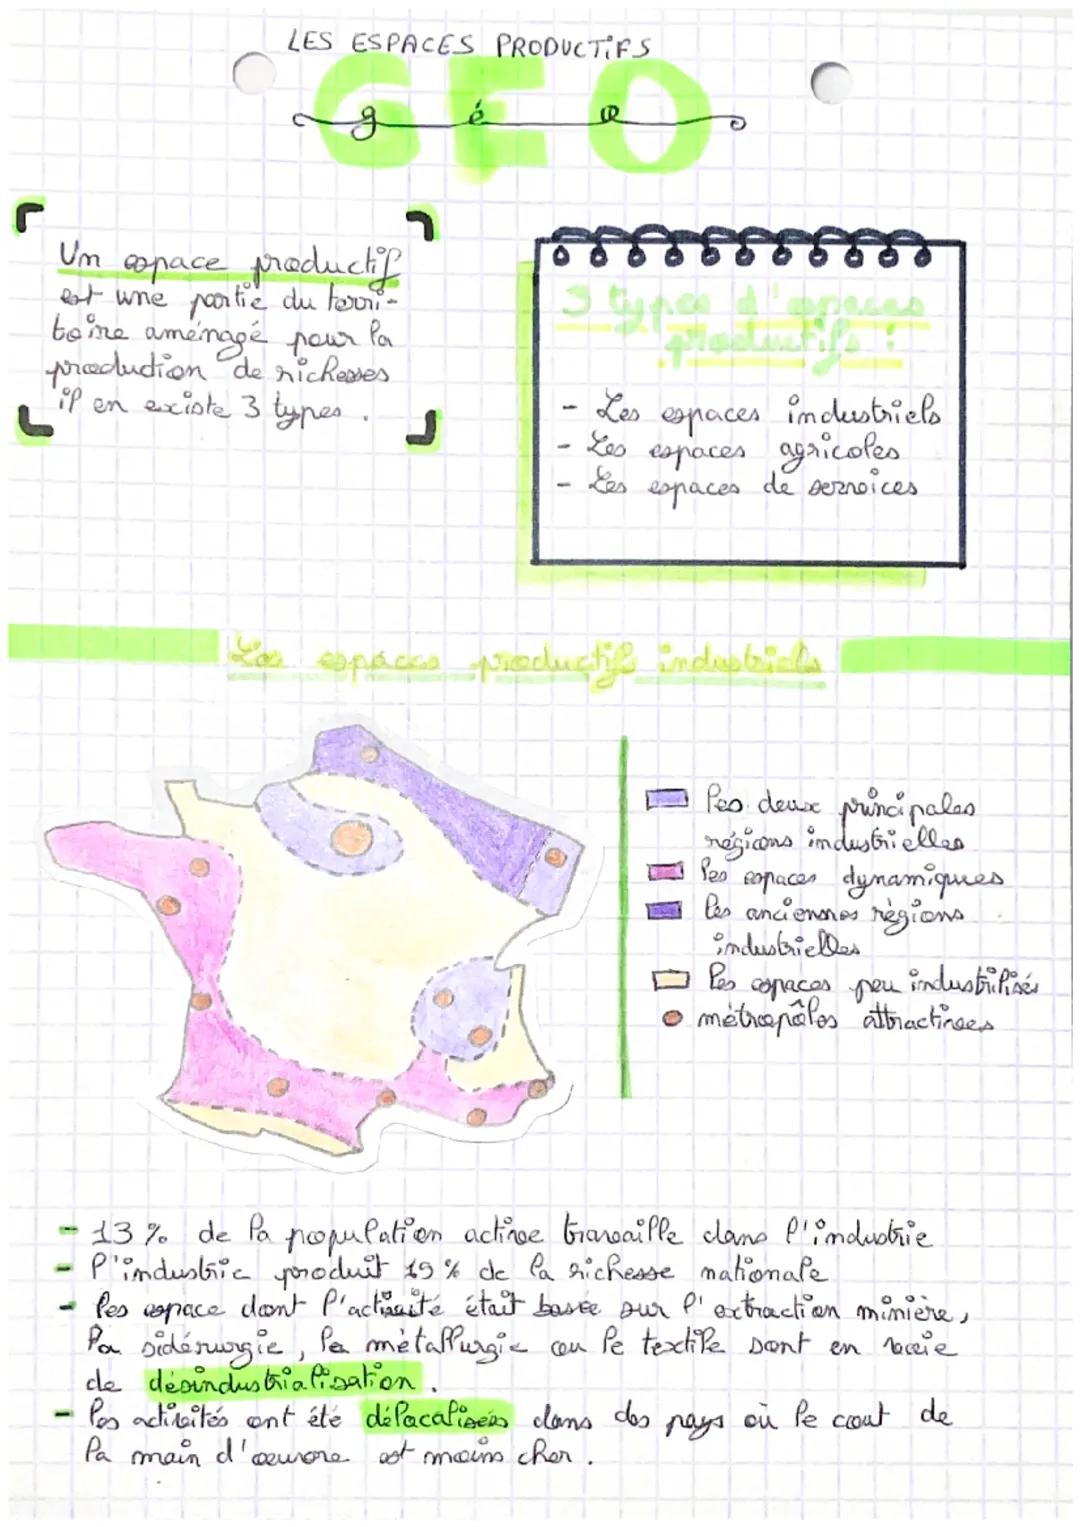 LES ESPACES PRODUCTIFS
GEO
géo
Un espace productif
est une partie du terri-
toire aménagé pour la
production de richesses
il en existe 3 types.
3 types d'espaces
productifs :
- Les espaces industriels
- Les espaces agricoles
- Les espaces de services
Les espaces productifs industriels
les deux principales
régions industrielles
les espaces dynamiques
les anciennes régions
industrielles
les espaces peu industrilisés
métropôles attractives
- 13 % de la population active travaille dans l'industrie
- l'industrie produit 19 % de la richesse nationale
- les espace dont l'activité était basée sur l'extraction minière,
la sidérurgie, la métallurgie ou le textile sont en voie
de désindustrialisation.
- les activités ont été délocalisées dans des pays où le cout de
la main d'œuvre est moins cher.